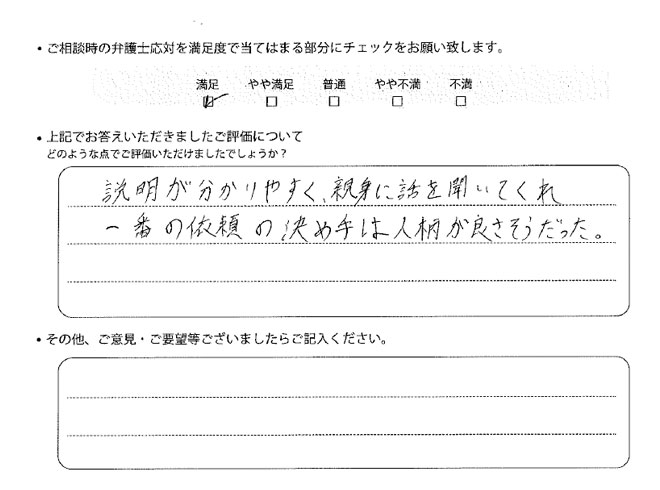 ・ご相談時の弁護士応対を満足度で当てはまる部分にチェックをお願い致します。
満足 やや満足 普通 やや不満 不満
・上記でお答えいただきましたご評価について
どのような点でご評価いただけましたでしょうか？
説明が分かりやすく、親身に話を聞いてくれ
一番の依頼の決め手は人柄が良さそうだった。
・その他、ご意見・ご要望等ございましたらご記入ください。